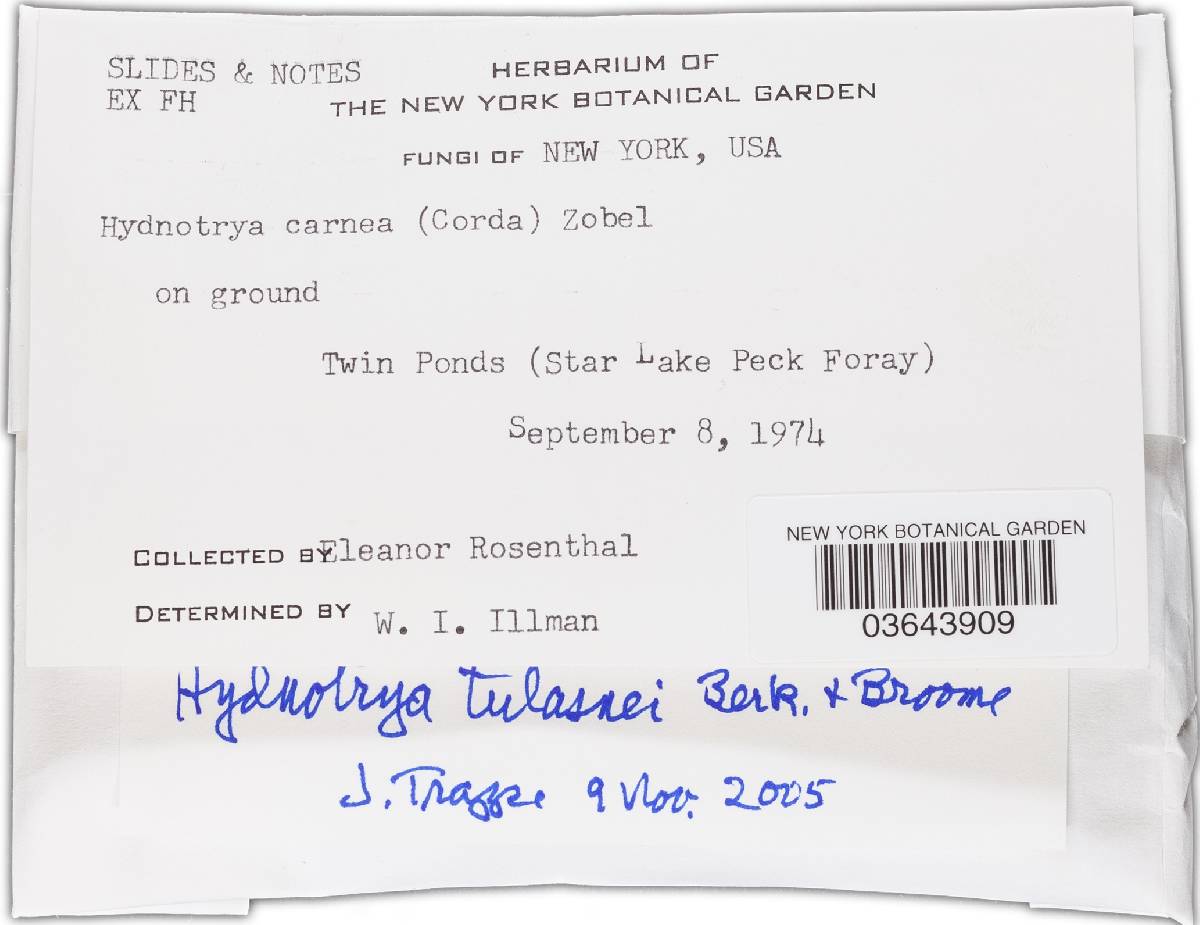 SLIDES & NOTES
EX FH
HERBARIUM OF
THE NEW YORK BOTANICAL GARDEN
FUNGI OF NEW YORK, USA
Hydnotrya carnea (Corda) Zobel
on ground
Twin Ponds (Star Lake Peck Foray)
September 8, 1974
COLLECTED BY Eleanor Rosenthal
DETERMINED BY W. I. Illman
NEW YORK BOTANICAL GARDEN
03643909
Hydnotrya tulasnei Berk. & Broome
J. Trappe 9 Nov. 2005